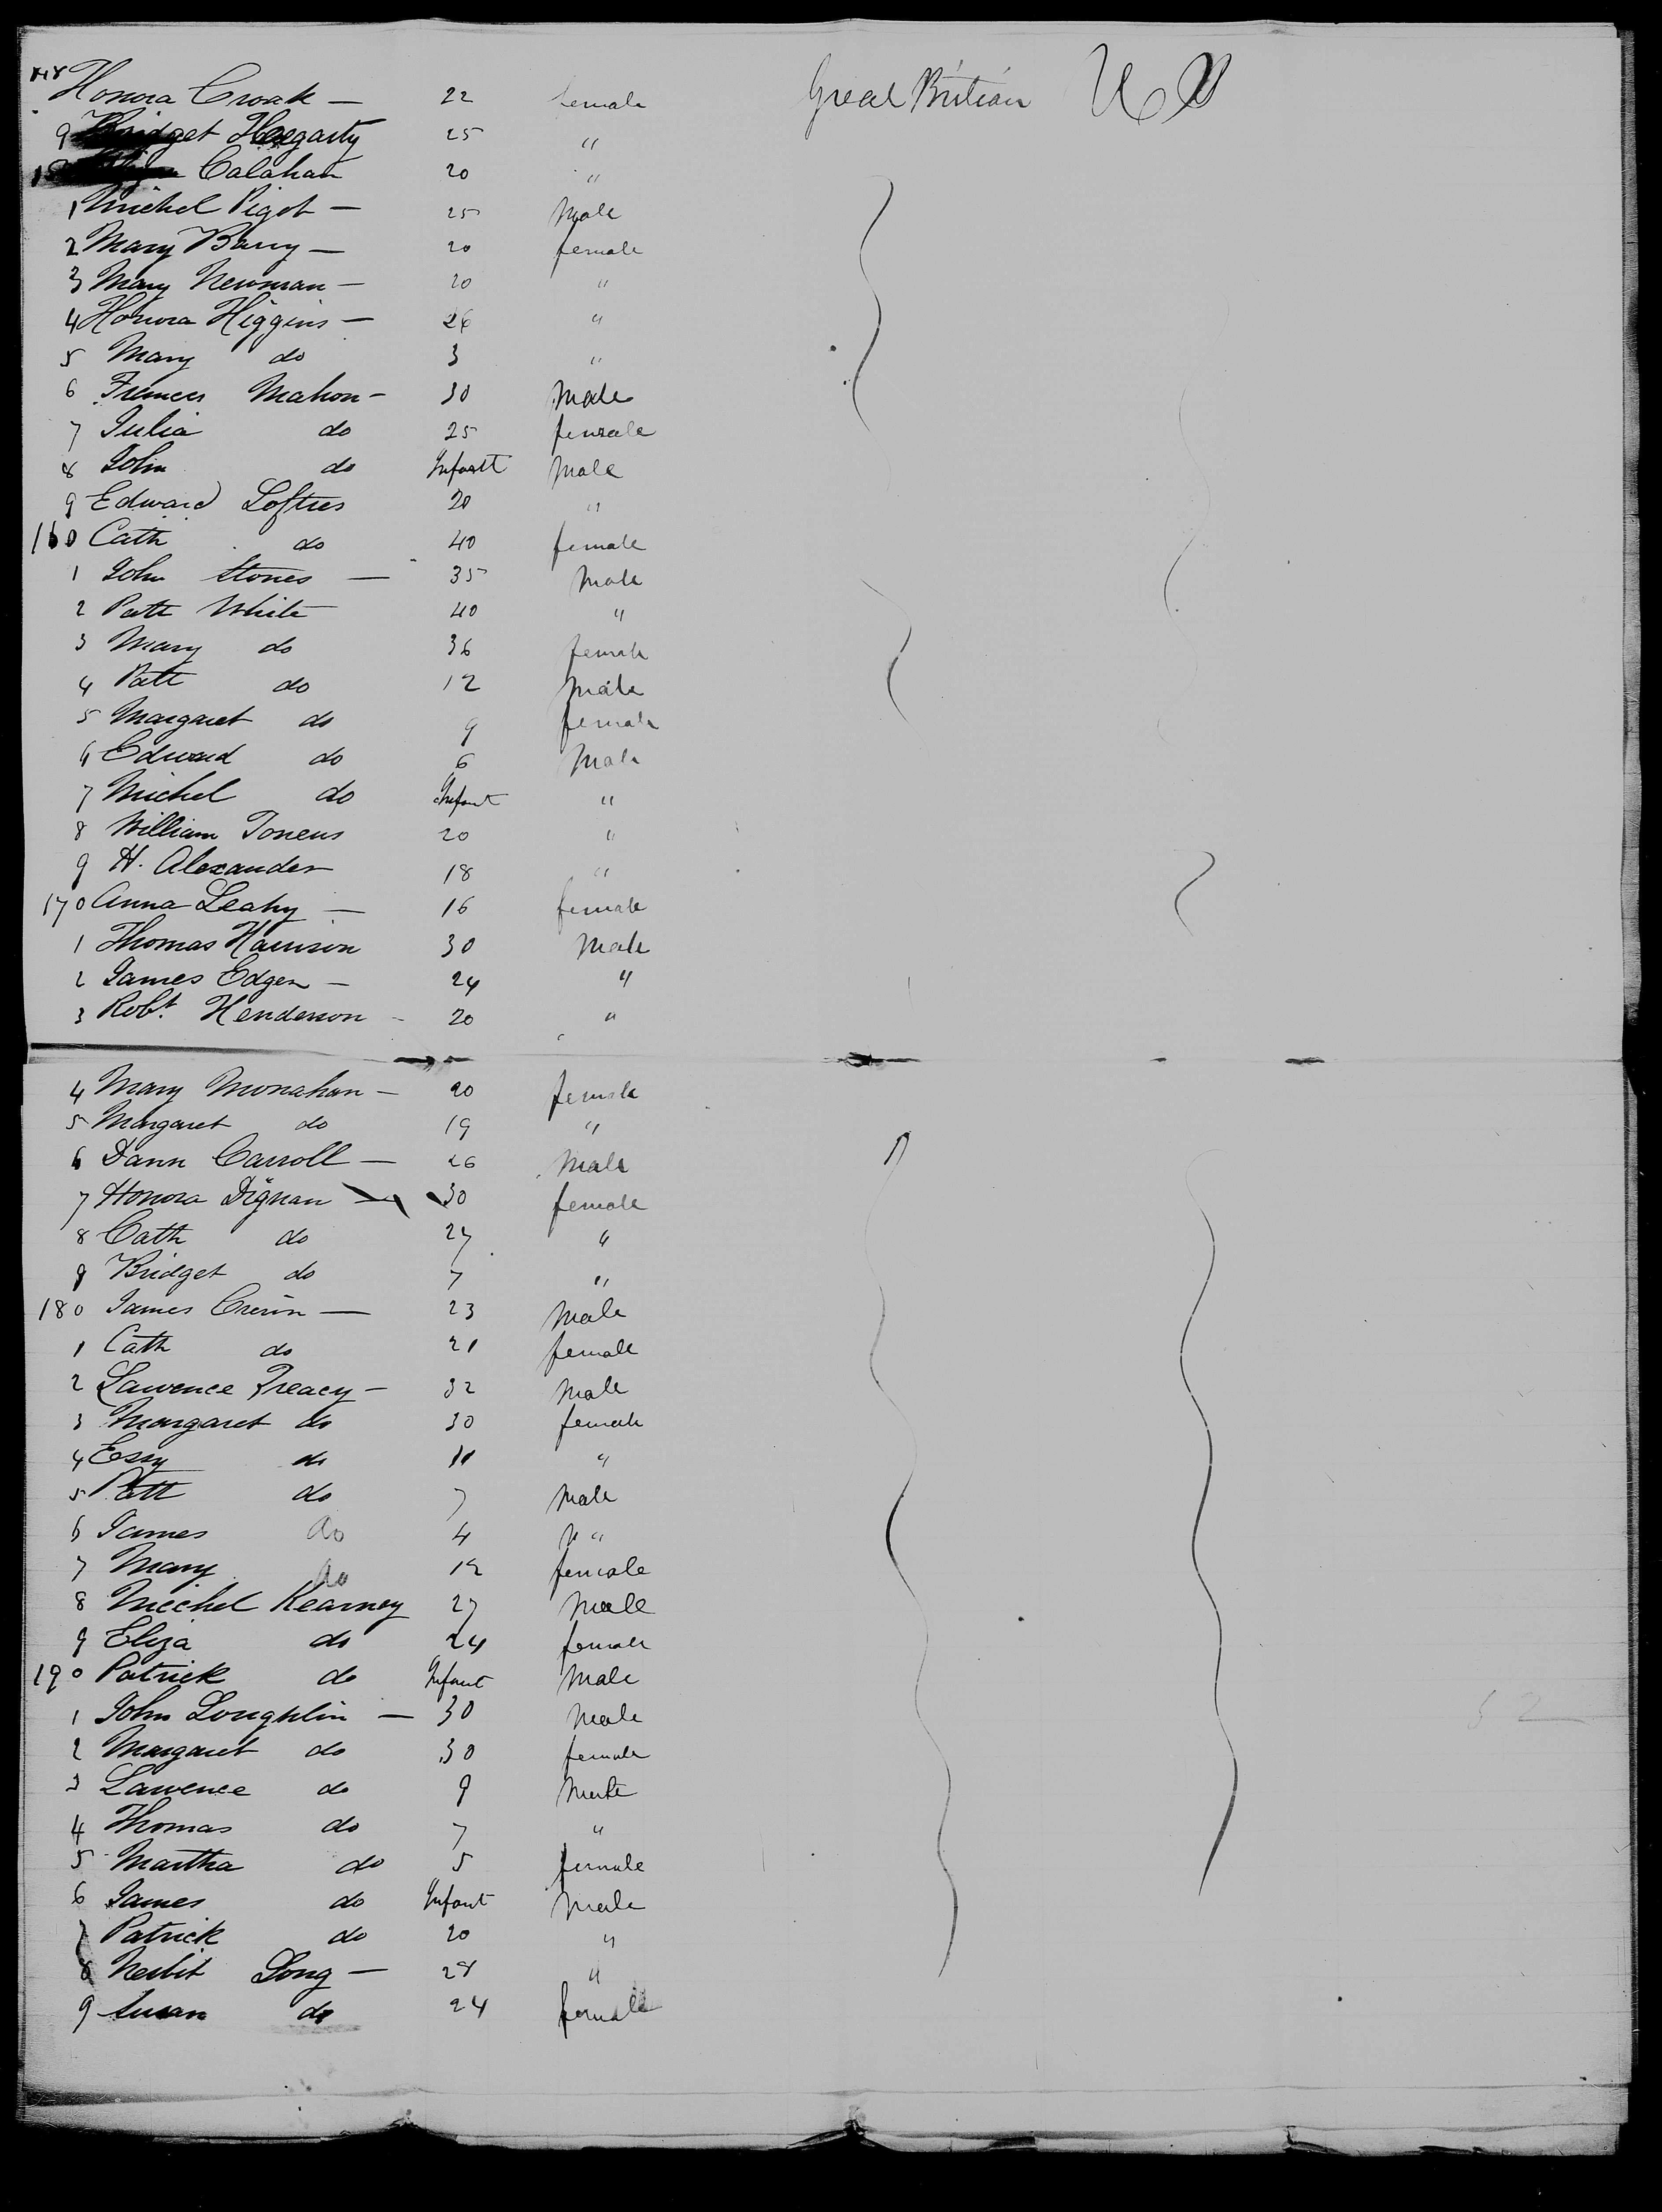 148 Honora Croak — 22 female Great Britian U S
9 Bridget Hegarty 25 "
Calahan 20 "
1 Michel Pigot — 25 Male
2 Mary Barry — 20 female
3 Mary Newman — 20 "
4 Honora Higgins — 26 "
5 Mary do 3 "
6 Frances Mahon — 30 Male
7 Julia do 25 female
8 John do Infant Male
9 Edward Loftus 20 "
160 Cath do 40 female
1 John Stones — 35 Male
2 Patt White 40 "
3 Mary do 36 female
4 Patt do 12 Male
5 Margaret do 9 female
6 Edward do 6 Male
7 Michel do Infant "
8 William Toneus 20 "
9 H. Alexander 18 "
170 Anna Leahy — 16 female
1 Thomas Harrison 30 Male
2 James Edger — 24 "
3 Robt. Henderson - 20 "
4 Mary Monahan — 20 female
5 Margaret do 19 "
6 Dann Carroll — 26 Male
7 Honora Dignan — 30 female
8 Cath do 27 "
9 Bridget do 7 "
180 James Crerin — 23 Male
1 Cath do 21 female
2 Lawence Treacy — 32 Male
3 Margaret do 30 female
4 Essy do 11 "
5 Patt do 7 Male
6 James do 4 "
7 Mary do 12 female
8 Michel Kearney 27 Male
9 Eliza do 24 female
190 Patrick do Infant Male
1 John Loughlin — 30 Male
2 Margaret do 30 female
3 Lawence do 9 Male
4 Thomas do 7 "
5 Martha do 5 female
6 James do Infant Male
7 Patrick do 20 "
8 Nesbit Long — 28 "
9 Susan do 24 female
52